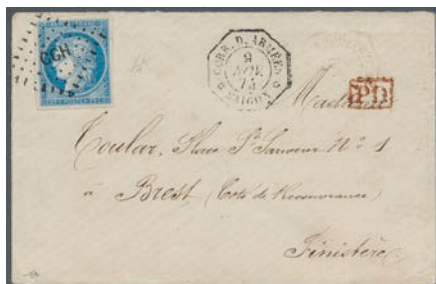 CORR. D. ARMÉES
9
NOV.
74
SAIGON
CCH
Madame
PD
Toular, Place St Sauveur No 1
à Brest (Coté de Recouvrance)
Finistère